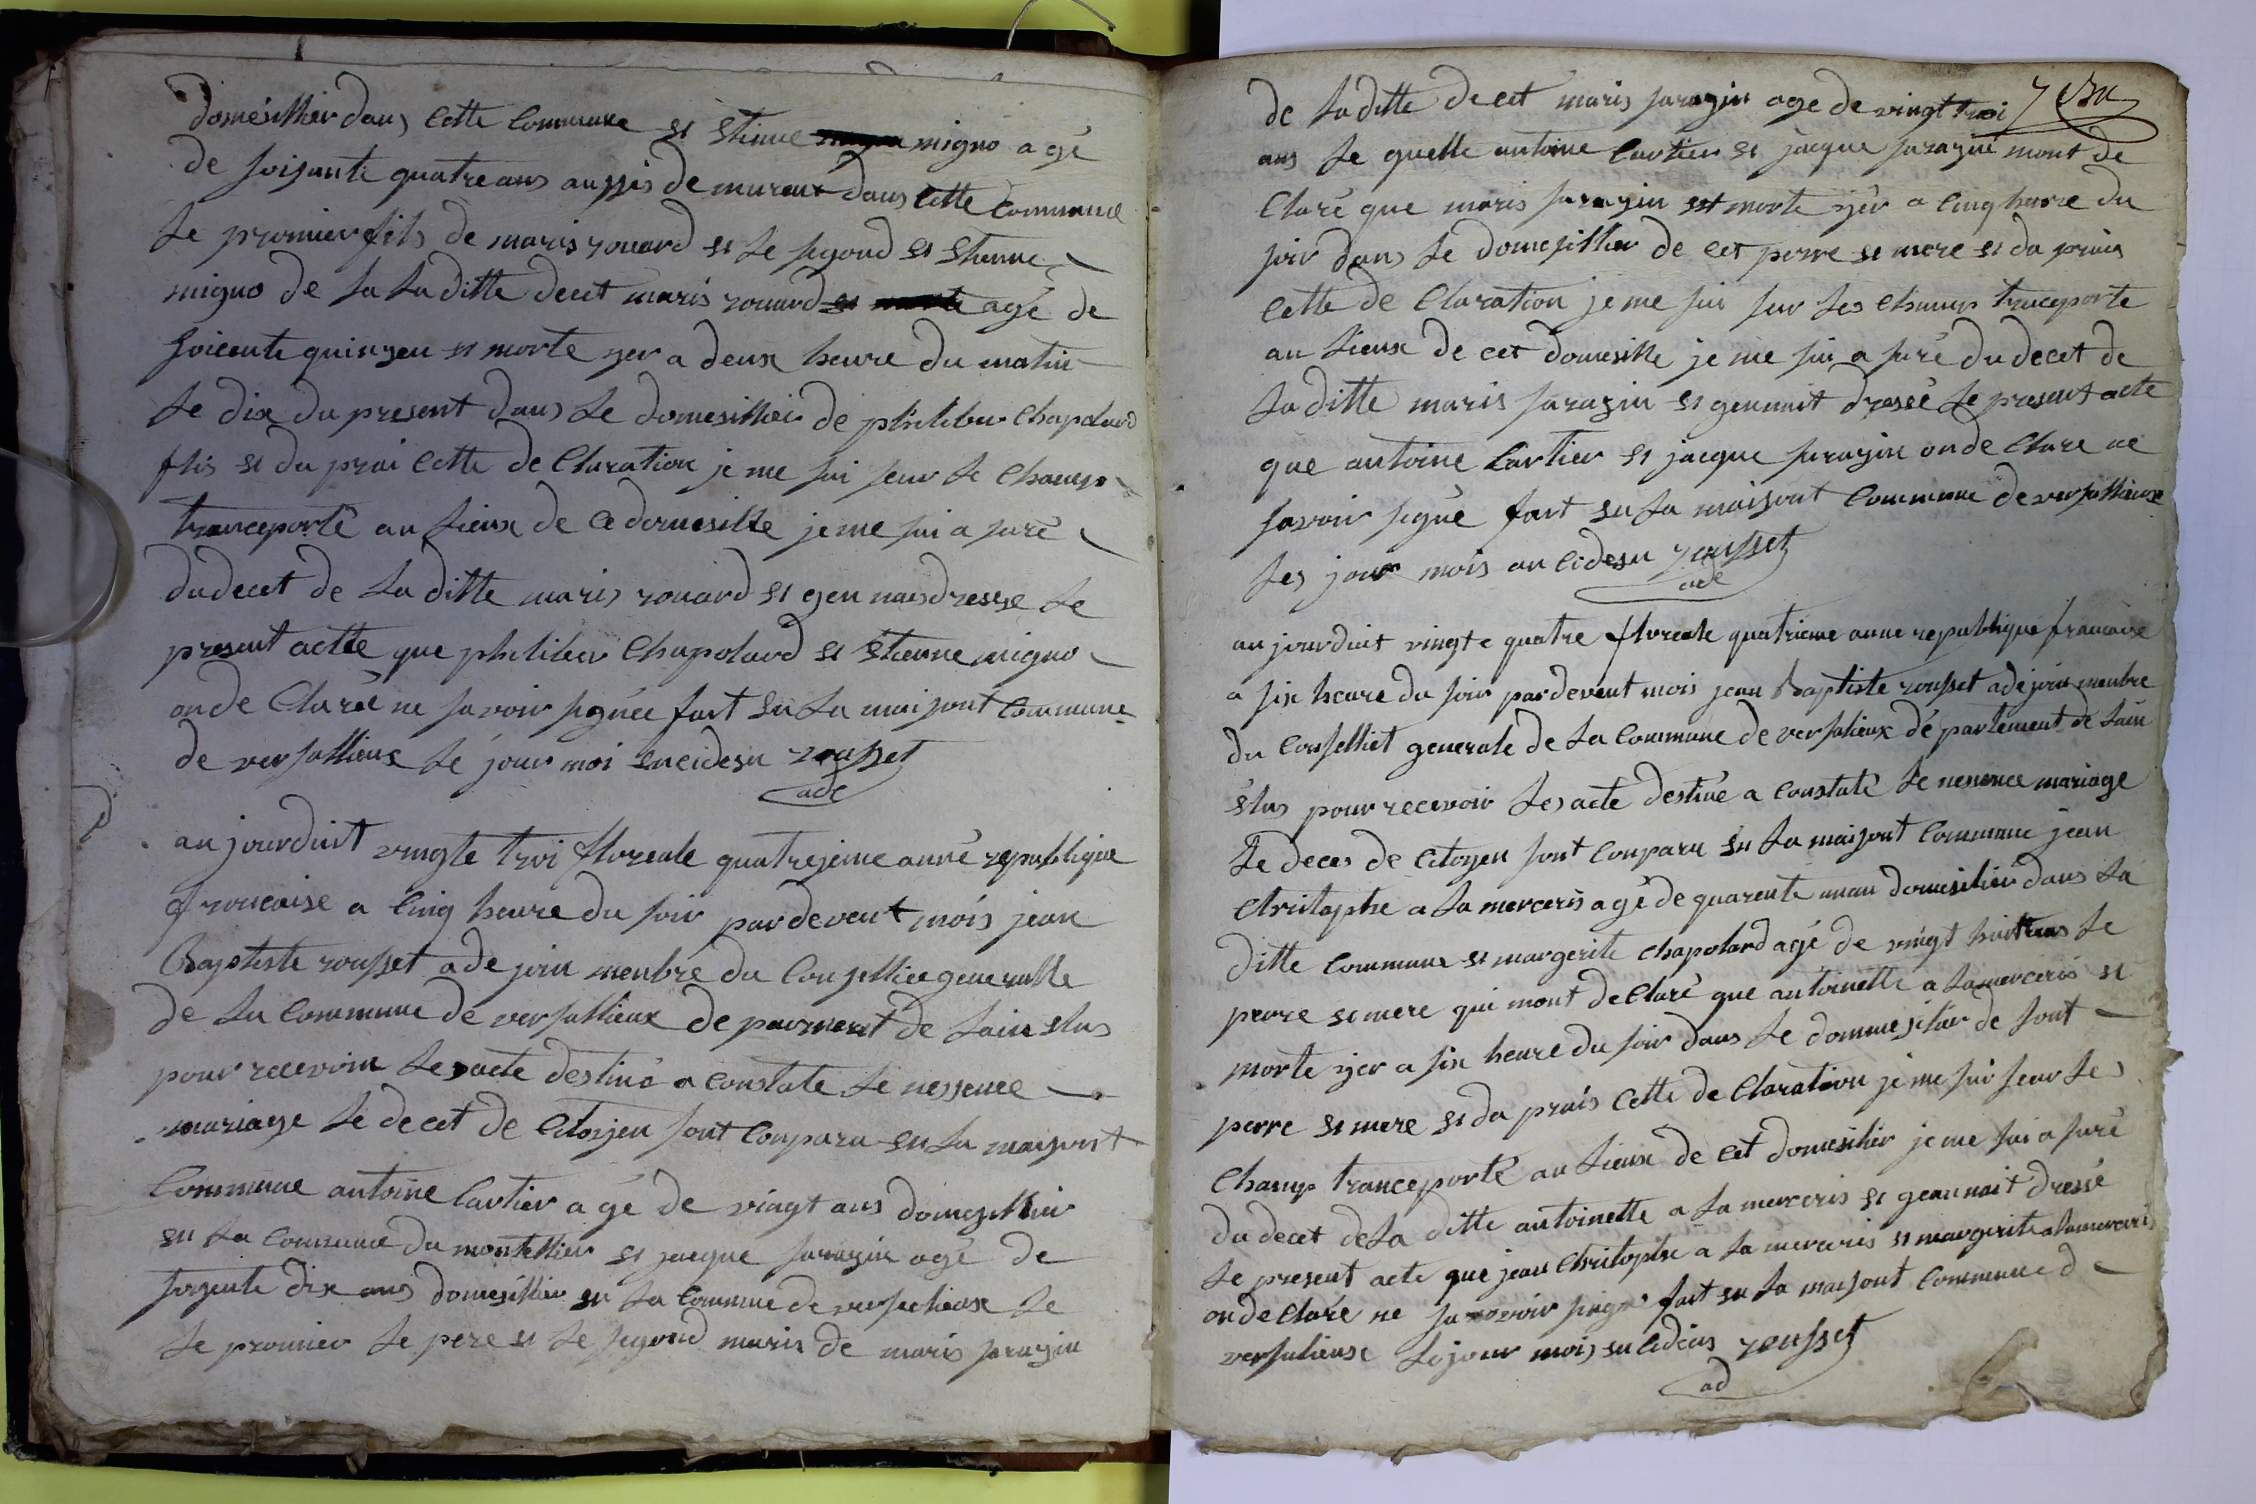 domesillier dans cette commune et etienne migno agé
de soisante quatre ans aussis de mureux dans cette commune
le promier fils de maris rouard et le segond et etienne
migno de sa la ditte decet maris rouard agé de
soicente quinzeu et morte yer a deux heure du matin
le dix du present dans le domesillier de philiber Chapolard
flis et da prai cette de Claration je me sui seur le Chamm
tranceporté au lieux de ce domesille je me sui a suré
du decet de la ditte maris rouard et gen nais dresse le
present actte que philiber Chapolard et etienne migno
onde Claree ne savoir signée fart en la maisont commune
de versallieux le jour moi en cidesu rousset
ade
au jourduit vingte troi floreale quatrejeme anné republique
francaise a cinq heure du soir pardevent mois jean
Baptiste rousset adejoin menbre du Conseillee generalle
de la Commune de versallieux de parment de lain elus
pour recevoir les acte destiné a constate le nessence
mariage le decet de Citoyen sont Conparu en la maisont
Commune antoine Cartier agé de vingt ans domesillier
en la commune du montellier et jacque sarazin agé de
sogente dix ans domesillier en la commune de versalieux le
le promier le pere et le segond maris de maris sarazin
de la ditte decet maris sarazin age de vingt troi
ans le quelle antoine Cartier et jacque sarazin mont de
Claré que maris sarazin est morte yer a cinq heure du
soir dans le domesillier de cet perre et mere et da prais
cette de Claration je me sui sur les chamm tranceporte
au lieux de cet domesille je me sui a suré du decet de
la ditte maris sarazin et gennait dressé le present acte
que antoine Cartier et jacque sarazin onde Clare ne
savoir signé fart en la maisont Commune de versallieux
les jour mois an cidesu rousset
ade
au jourduit vingte quatre floreale quatrieme anne republique francaise
a six heure du soir pardevent mois jean Baptiste rousset adejoin menbre
du Conselliet generale de la Commune de versalieux dé partement de lain
élus pour recevoir les acte destiné a constaté le nesence mariage
le deces de Citoyen sont Conparu en la maisont Commune jean
Christophe a la merceris agé de quarente unan domesilier dans la
ditte Commune et margerite Chapolard agé de vingt huit ans le
perre et mere qui mont de Claré que antoinette a la merceris et
morte yer a six heure du soir dans le dommesilier de sont
perre et mere et da prais cette de Claration je me sui seur les
Chamm tranceporté au lieux de cet domesilier je me sui a suré
du decet de la ditte antoinette a la merceris et geannait dressé
le present acte que jean Christophe a la merceris et margerite alamerceris
onde Claré ne savoir signé fart en la maisont Commune d
versalieux le jour mois en cideus rousset
ad